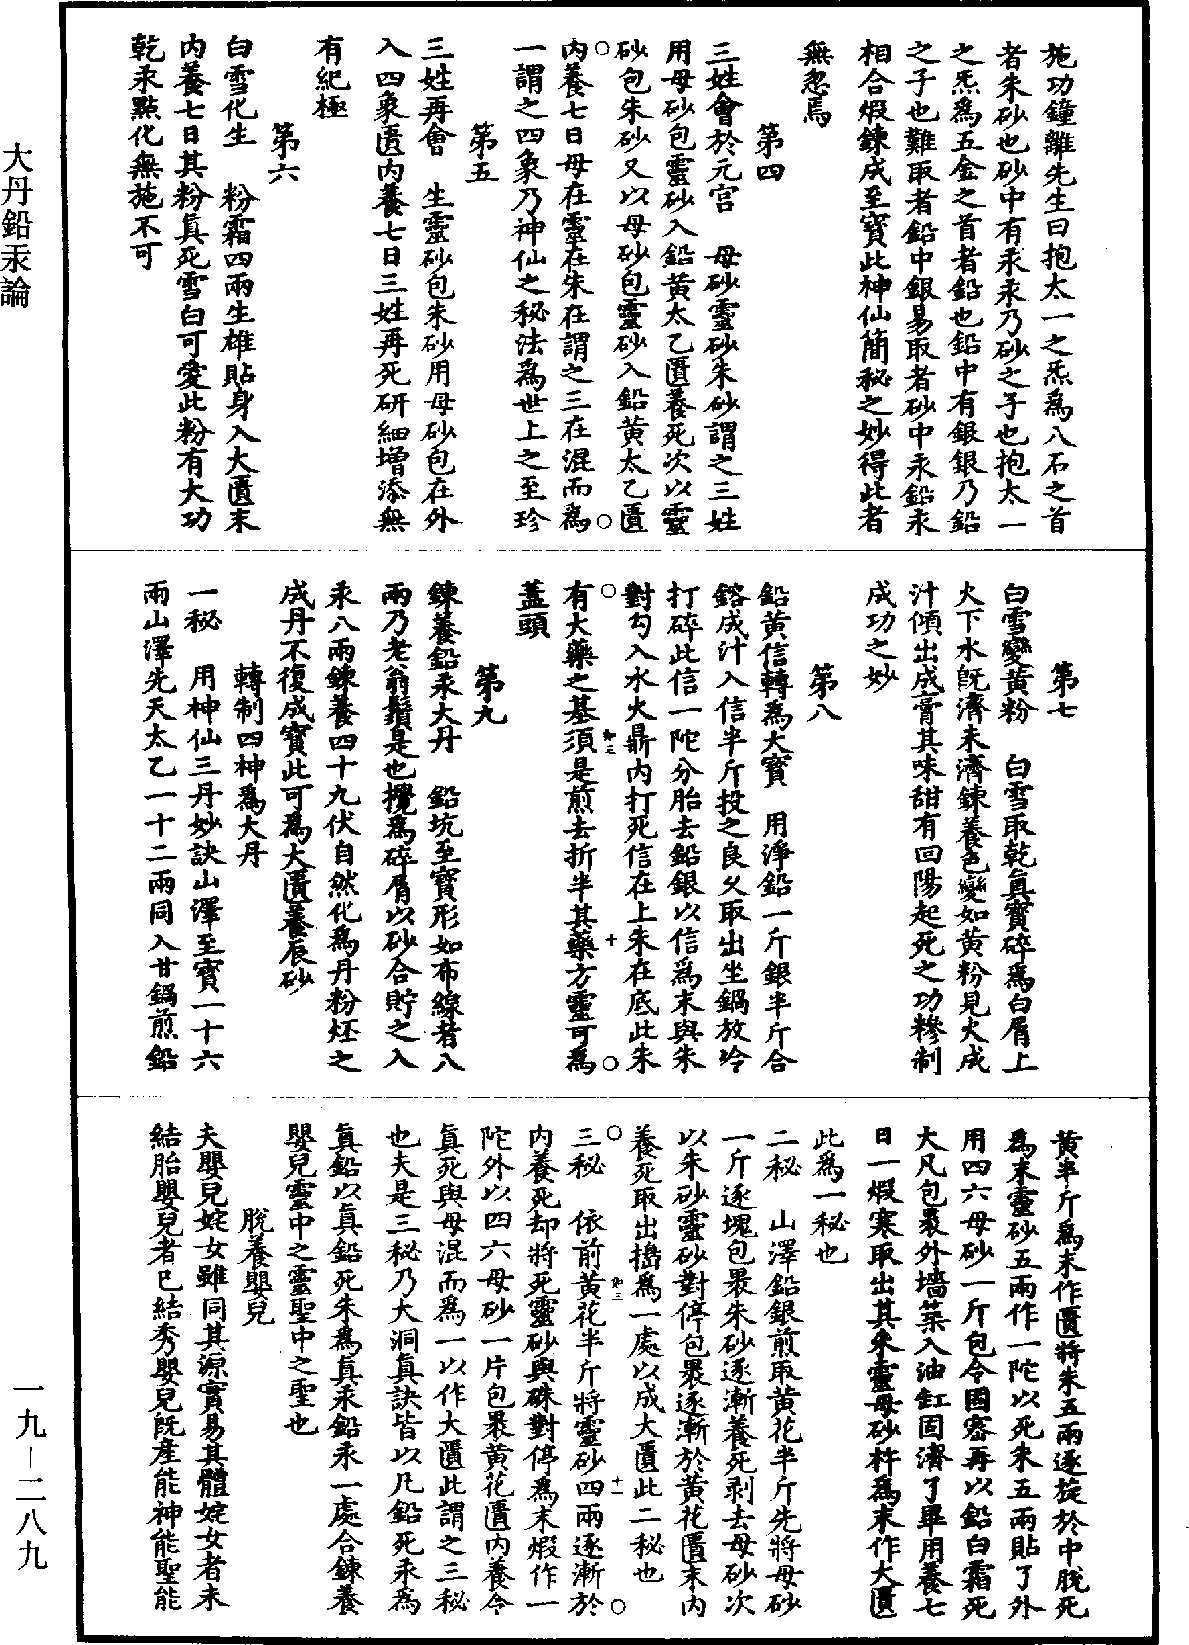 施功鐘離先生曰抱太一之炁為八石之首
者朱砂也砂中有汞汞乃砂之子也抱太一
之炁為五金之首者鉛也鉛中有銀銀乃鉛
之子也難取者鉛中銀易取者砂中汞鉛汞
相合煅鍊成至寶此神仙簡秘之妙得此者
無忽焉
第四
三姓會於元宮　母砂靈砂朱砂謂之三姓
用母砂包靈砂入鉛黃太乙匱養死次以靈
砂包朱砂又以母砂包靈砂入鉛黃太乙匱
內養七日母在靈在朱在謂之三在混而為
一謂之四象乃神仙之秘法為世上之至珍
第五
三姓再會　生靈砂包朱砂用母砂包在外
入四象匱內養七日三姓再死研細增添無
有紀極
第六
白雪化生　粉霜四兩生雄貼身入大匱末
內養七日其粉真死雪白可愛此粉有大功
乾汞點化無施不可
第七
白雪變黃粉　白雪取乾真寶碎為白屑上
火下水旣濟未濟鍊養色變如黃粉見火成
汁傾出成膏其味甜有回陽起死之功糝制
成功之妙
第八
鉛黃信轉為大寶　用淨鉛一斤銀半斤合
鎔成汁入信半斤投之良久取出坐鍋放冷
打碎此信一陀分胎去鉛銀以信為末與朱
對勻入水火鼎內打死信在上朱在底此朱
有大藥之基須是煎去折半其藥方靈可為
蓋頭
第九
鍊養鉛汞大丹　鉛坑至寶形如布線者八
兩乃老翁鬚是也攪為碎屑以砂合貯之入
汞八兩鍊養四十九伏自然化為丹粉炷之
成丹不復成寶此可為大匱養辰砂
轉制四神為大丹
一秘　用神仙三丹妙訣山澤至寶一十六
兩山澤先天太乙一十二兩同入甘鍋煎鉛
黃半斤為末作匱將朱五兩逐旋於中脫死
為末靈砂五兩作一陀以死朱五兩貼了外
用四六母砂一斤包令固密再以鉛白霜死
大凡包裹外墻築入油缸固濟了畢用養七
日一煅寒取出其朱靈母砂杵為末作大匱
此為一秘也
二秘　山澤鉛銀煎取黃花半斤先將母砂
一斤逐塊包裹朱砂逐漸養死剝去母砂次
以朱砂靈砂對停包裹逐漸於黃花匱末內
養死取出搗為一處以成大匱此二秘也
三秘　依前黃花半斤將靈砂四兩逐漸於
內養死却將死靈砂與硃對停為末煅作一
陀外以四六母砂一片包裹黃花匱內養令
真死與母混而為一以作大匱此謂之三秘
也夫是三秘乃大洞真訣皆以凡鉛死汞為
真鉛以真鉛死朱為真汞鉛汞一處合鍊養
嬰兒靈中之靈聖中之聖也
脫養嬰兒
夫嬰兒姹女雖同其源實易其體姹女者未
結胎嬰兒者已結秀嬰兒旣產能神能聖能
大丹鉛汞論
一九—二八九